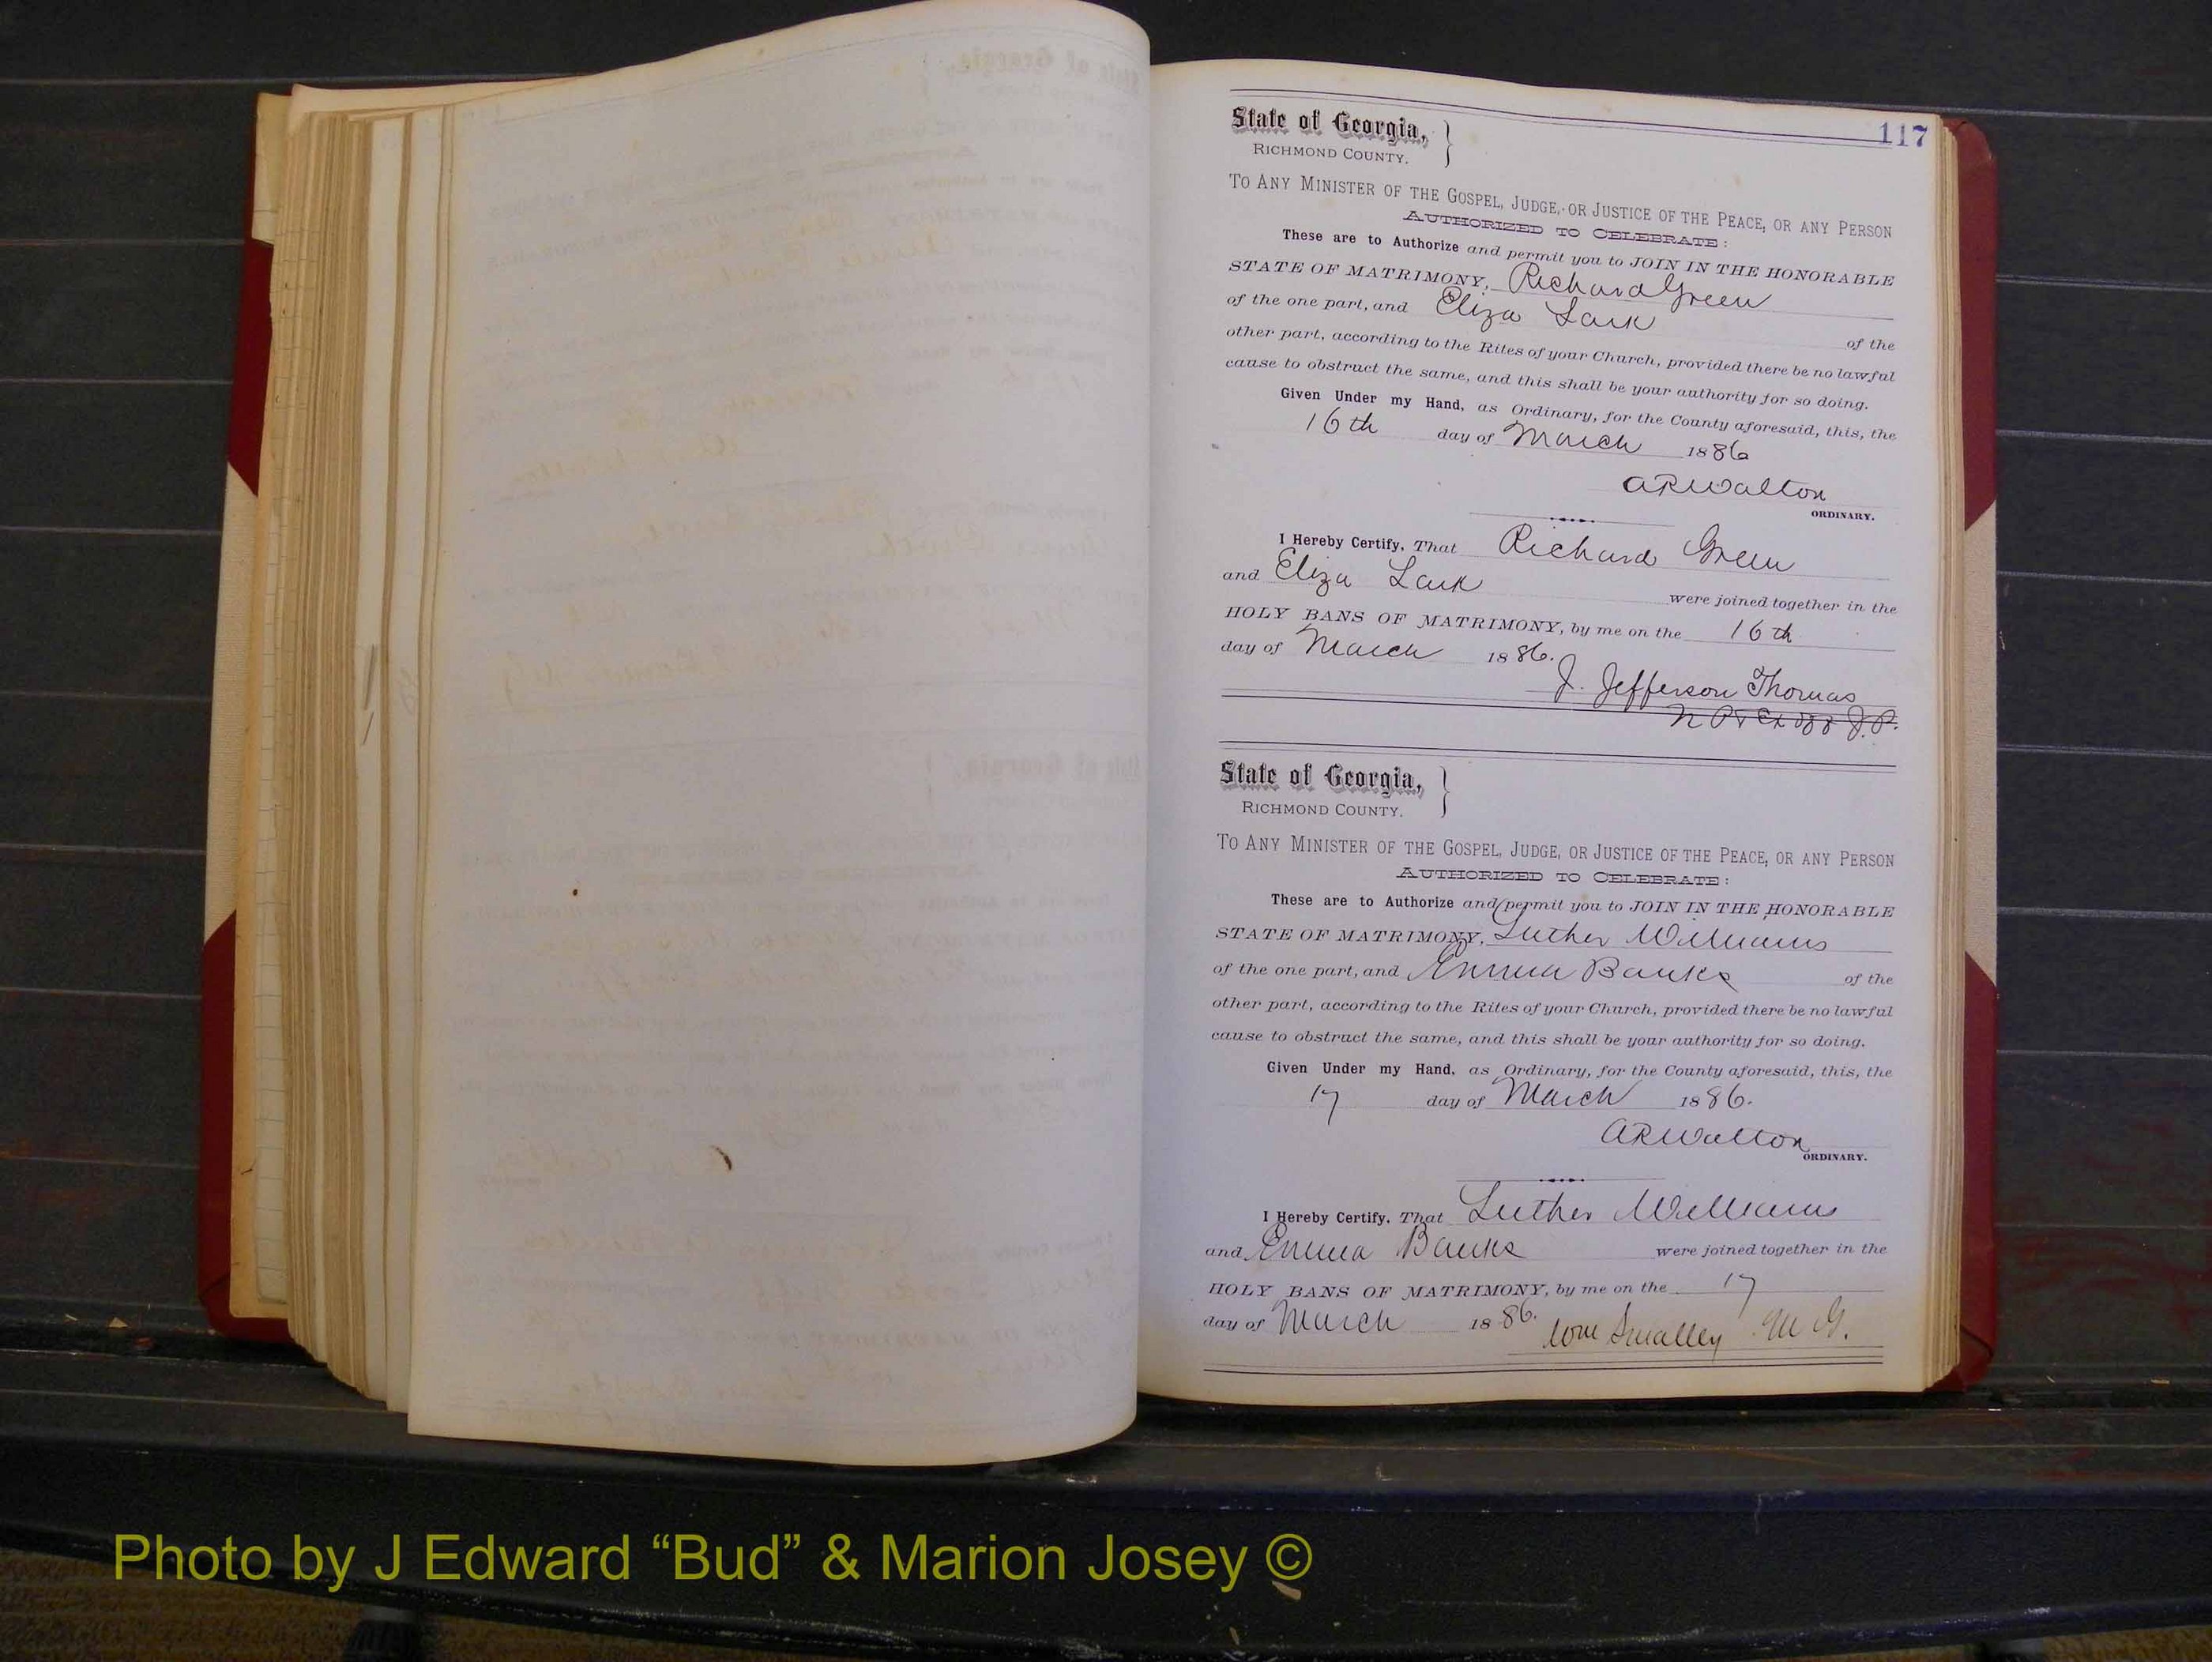 117
State of Georgia, }
RICHMOND COUNTY.
TO ANY MINISTER OF THE GOSPEL, JUDGE, OR JUSTICE OF THE PEACE, OR ANY PERSON
AUTHORIZED TO CELEBRATE:
These are to Authorize and permit you to JOIN IN THE HONORABLE
STATE OF MATRIMONY, Richard Green
of the one part, and Eliza Lark of the
other part, according to the Rites of your Church, provided there be no lawful
cause to obstruct the same, and this shall be your authority for so doing.
Given Under my Hand, as Ordinary, for the County aforesaid, this, the
16th day of March 1886
ARWalton
ORDINARY.
I Hereby Certify, That Richard Green
and Eliza Lark were joined together in the
HOLY BANS OF MATRIMONY, by me on the 16th
day of March 1886.
J. Jefferson Thomas
N P & Ex off J.P.
State of Georgia, }
RICHMOND COUNTY.
TO ANY MINISTER OF THE GOSPEL, JUDGE, OR JUSTICE OF THE PEACE, OR ANY PERSON
AUTHORIZED TO CELEBRATE:
These are to Authorize and permit you to JOIN IN THE HONORABLE
STATE OF MATRIMONY, Luther Williams
of the one part, and Emma Banks of the
other part, according to the Rites of your Church, provided there be no lawful
cause to obstruct the same, and this shall be your authority for so doing.
Given Under my Hand, as Ordinary, for the County aforesaid, this, the
17 day of March 1886.
ARWalton
ORDINARY.
I Hereby Certify, That Luther Williams
and Emma Banks were joined together in the
HOLY BANS OF MATRIMONY, by me on the 17
day of March 1886.
Wm Smalley M G.
Photo by J Edward “Bud” & Marion Josey ©